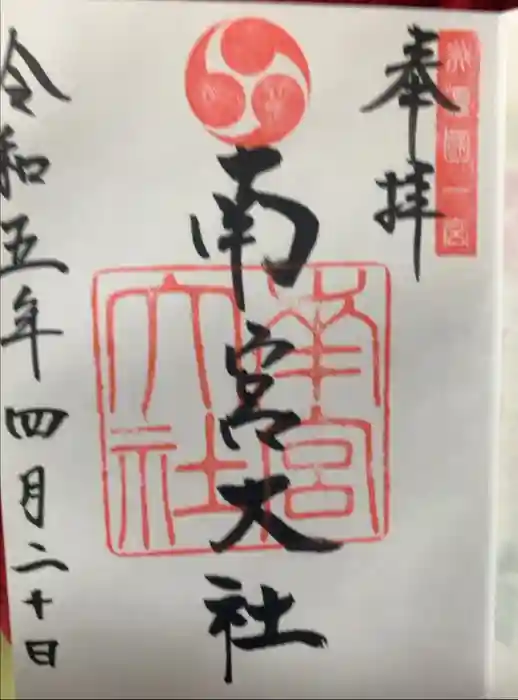 美濃國一宮
奉拝
南宮大社
南宮大社
令和五年四月二十日